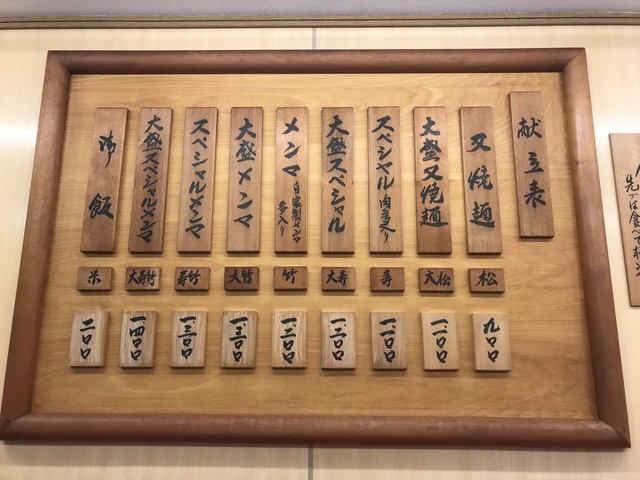 献立表
叉焼麺
松
九〇〇
大盛叉焼麺
大松
一、一〇〇
スペシャル 肉多入り
寿
一、一〇〇
大盛スペシャル
大寿
一、二〇〇
メンマ 自家製メンマ
多入り
竹
一、二〇〇
大盛メンマ
大竹
一、三〇〇
スペシャルメンマ
寿竹
一、三〇〇
大盛スペシャルメンマ
大寿竹
一、四〇〇
御飯
米
二〇〇
先づは食べ